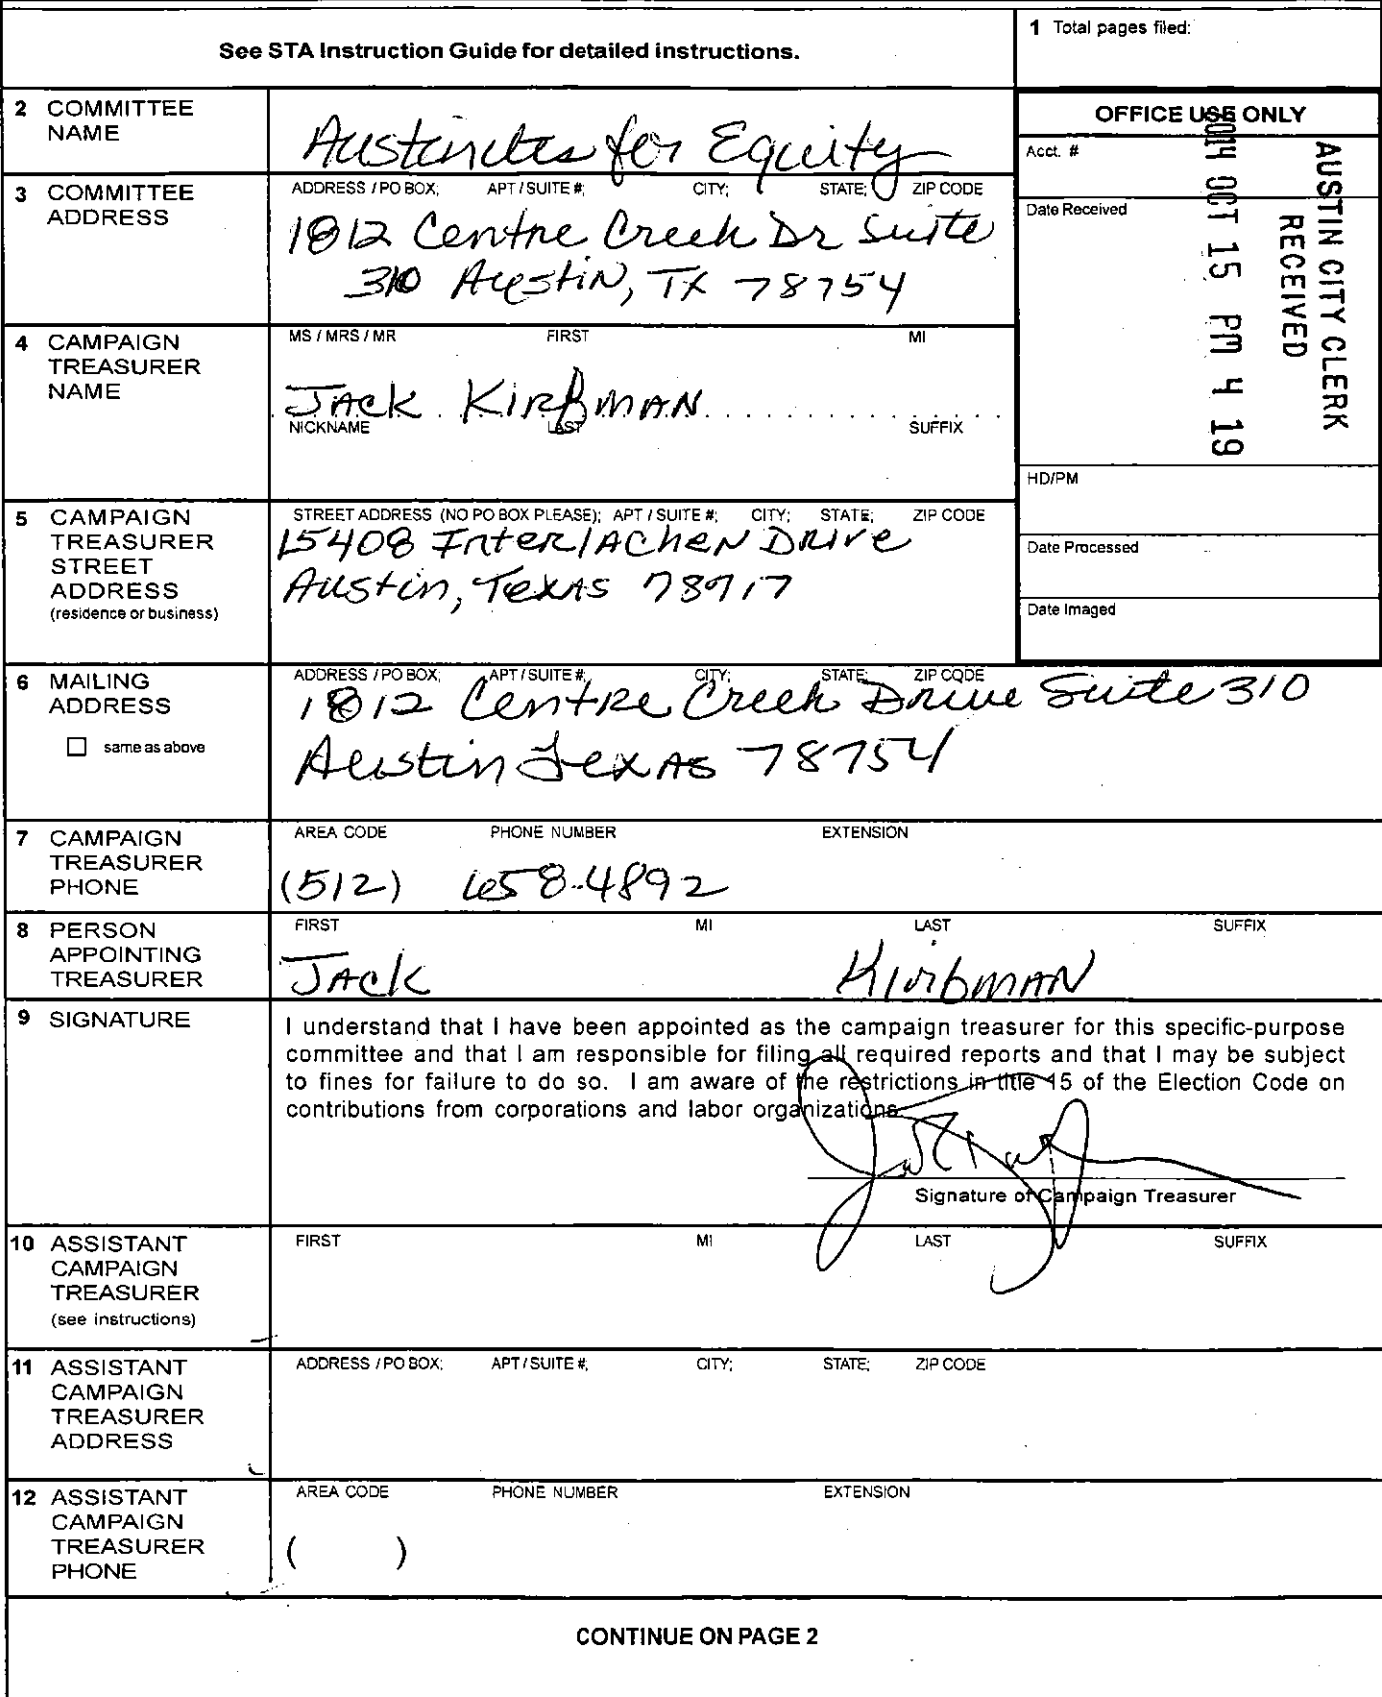 See STA Instruction Guide for detailed instructions.
1 Total pages filed:
2 COMMITTEE NAME
Austinites for Equity
OFFICE USE ONLY
Acct. #
Date Received
AUSTIN CITY CLERK
RECEIVED
2014 OCT 15 PM 4 19
HD/PM
Date Processed
Date Imaged
3 COMMITTEE ADDRESS
ADDRESS / PO BOX; APT / SUITE #; CITY; STATE; ZIP CODE
1812 Centre Creek Dr Suite
310 Austin, TX 78754
4 CAMPAIGN TREASURER NAME
MS / MRS / MR FIRST MI
Jack Kirbman
NICKNAME LAST SUFFIX
5 CAMPAIGN TREASURER STREET ADDRESS
(residence or business)
STREET ADDRESS (NO PO BOX PLEASE); APT / SUITE #; CITY; STATE; ZIP CODE
15408 Interlachen Drive
Austin, Texas 78717
6 MAILING ADDRESS
same as above
ADDRESS / PO BOX; APT / SUITE #; CITY; STATE; ZIP CODE
1812 Centre Creek Drive Suite 310
Austin Texas 78754
7 CAMPAIGN TREASURER PHONE
AREA CODE PHONE NUMBER EXTENSION
(512) 658-4892
8 PERSON APPOINTING TREASURER
FIRST MI LAST SUFFIX
Jack Kirbman
9 SIGNATURE
I understand that I have been appointed as the campaign treasurer for this specific-purpose
committee and that I am responsible for filing all required reports and that I may be subject
to fines for failure to do so. I am aware of the restrictions in title 15 of the Election Code on
contributions from corporations and labor organizations.
Signature of Campaign Treasurer
10 ASSISTANT CAMPAIGN TREASURER
(see instructions)
FIRST MI LAST SUFFIX
11 ASSISTANT CAMPAIGN TREASURER ADDRESS
ADDRESS / PO BOX; APT / SUITE #; CITY; STATE; ZIP CODE
12 ASSISTANT CAMPAIGN TREASURER PHONE
AREA CODE PHONE NUMBER EXTENSION
( )
CONTINUE ON PAGE 2